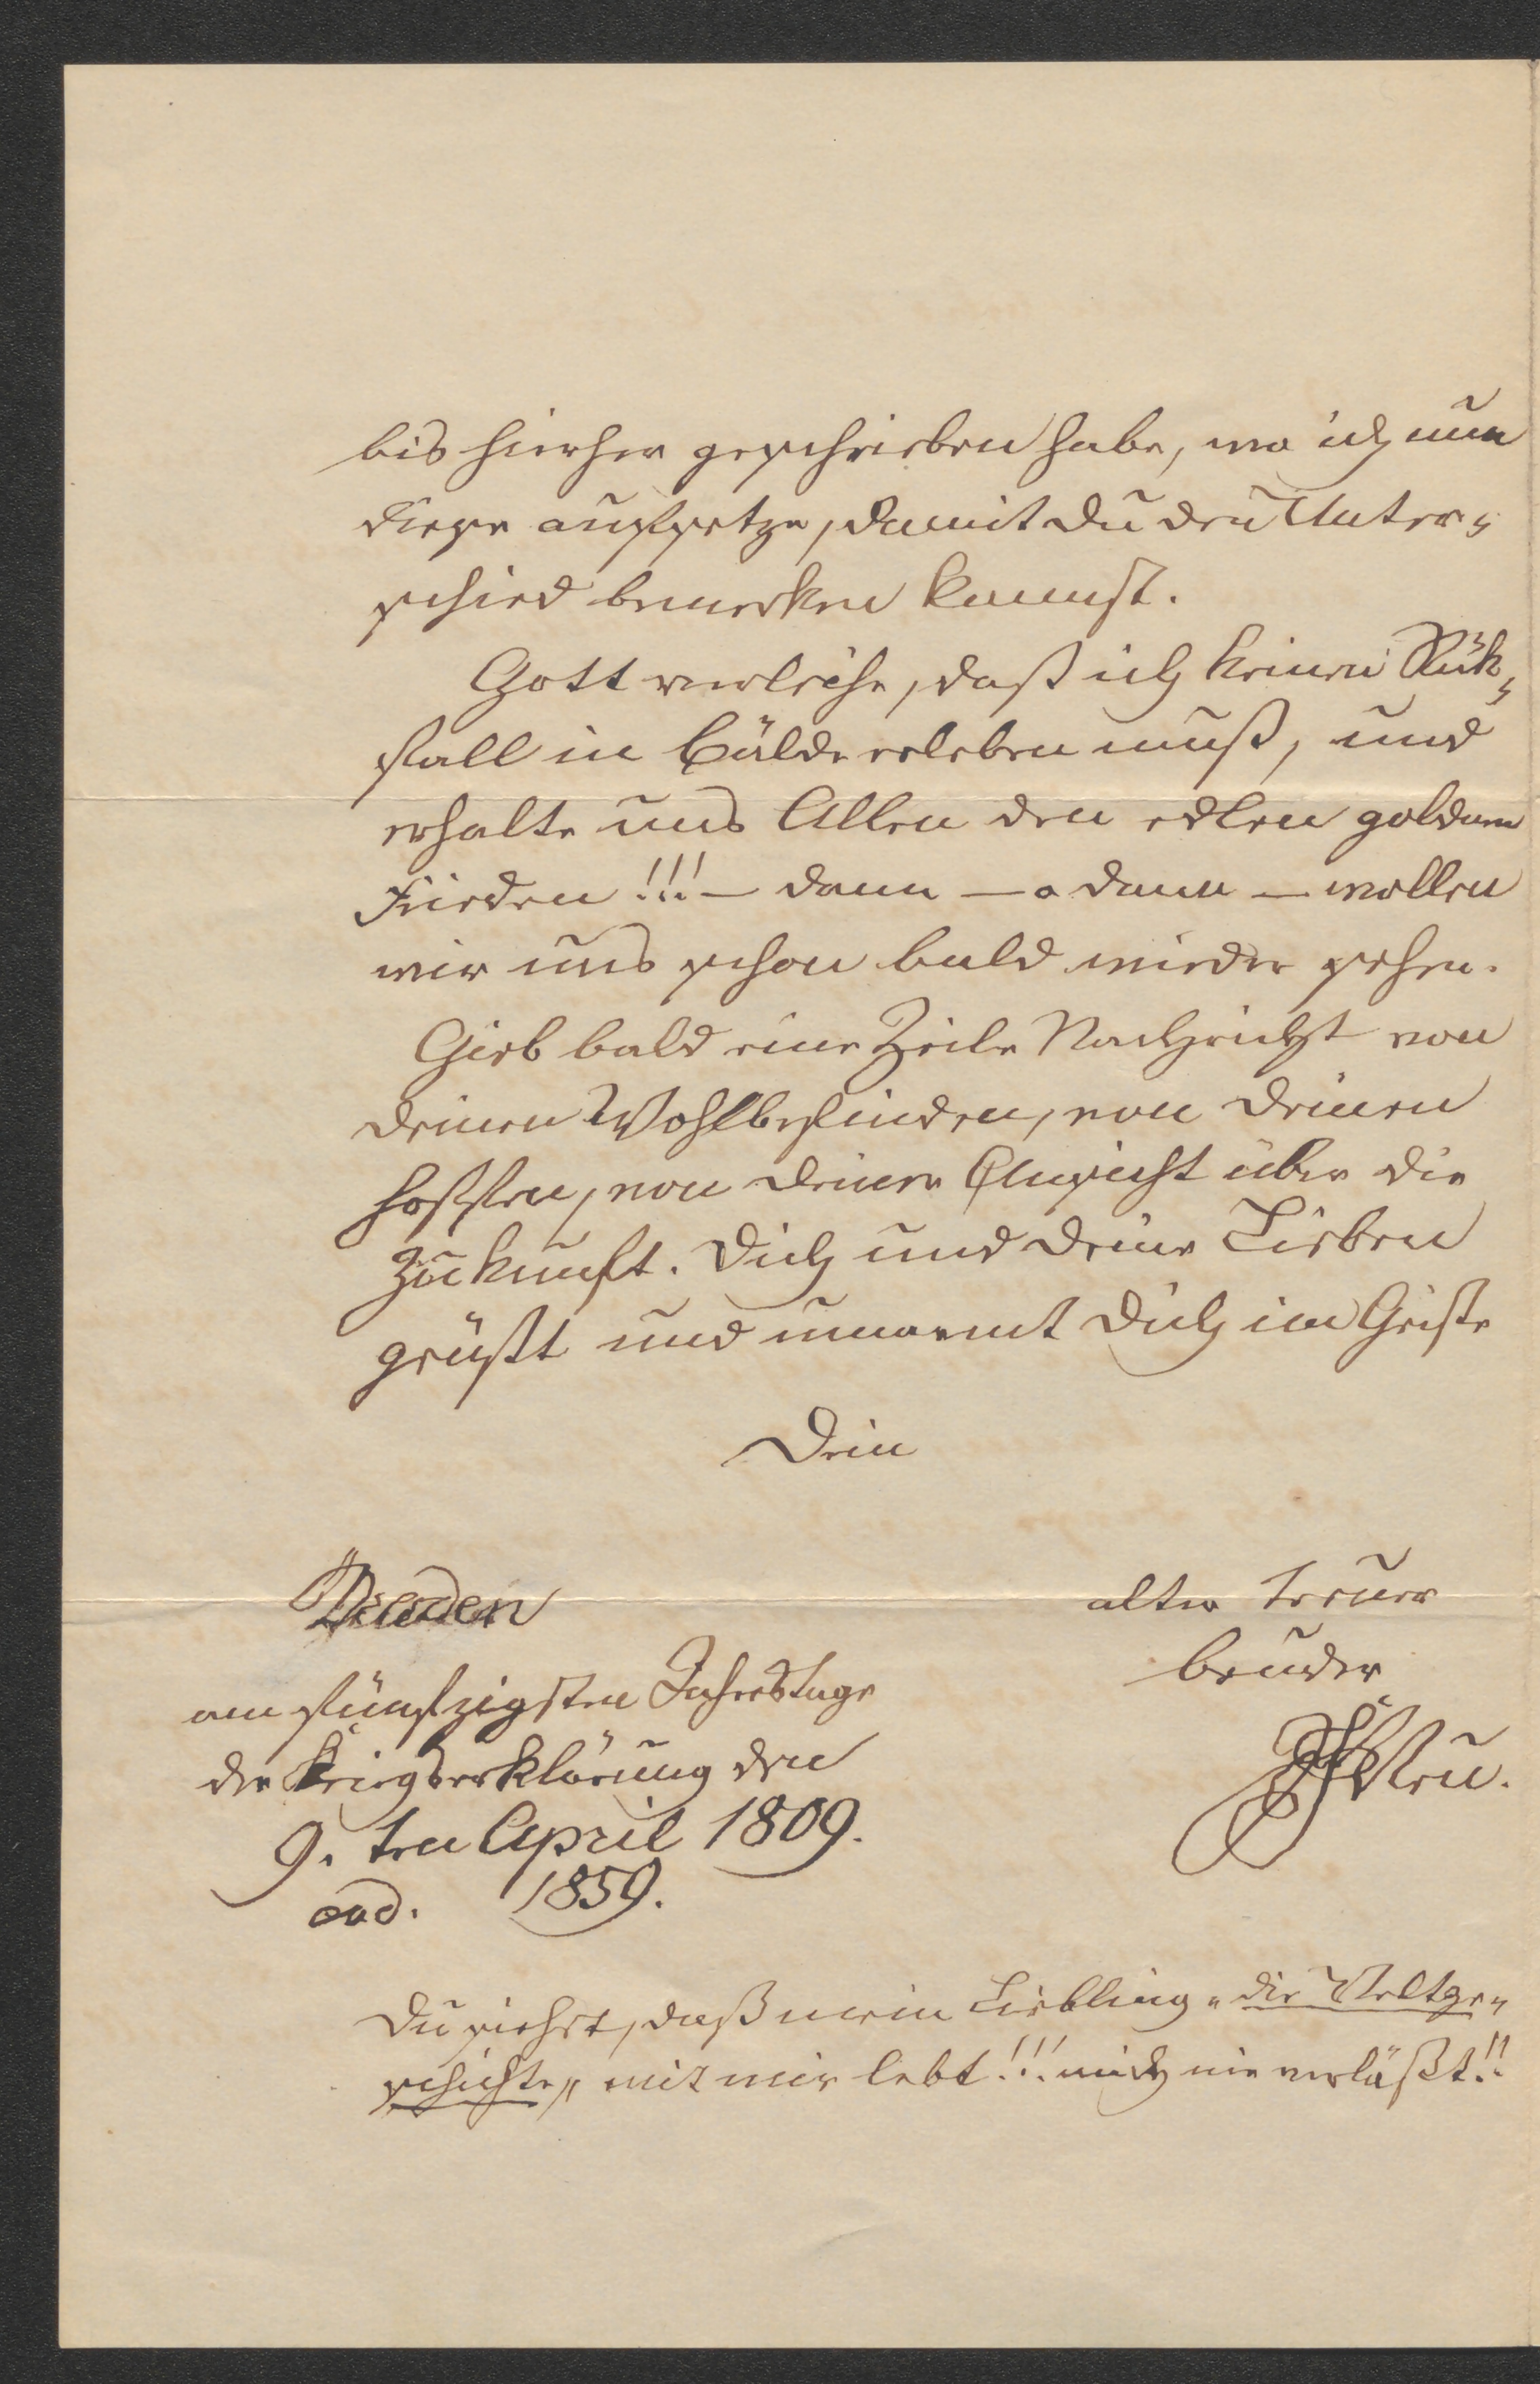 bis hierher geschrieben habe, wo ich nun
diese aufsetze, damit du den Unter-
schied bemerken kannst.
Gott verleihe, daß ich keinen Rük-
fall in Bälde erleben muß, und
erhalte uns Allen den edlen goldnen
Frieden!!! — dann — o dann — wollen
wir uns schon bald wieder sehen.
Gieb bald eine Zeile Nachricht von
deinen Wohlbefinden, von deinen
hoffen, von deiner Ansicht über die
Zukunft. Dich und deine Lieben
grüßt und umarmt dich im Geiste
Dein
Dresden
alter treuer
bruder
am fünfzigsten Jahrestage
der Kriegserklärung den
9. ten April 1809.
1859.
Du siehst, daß mein Liebling „die Weltge-
schichte„ mit mir lebt!!! mich nie verläßt!!